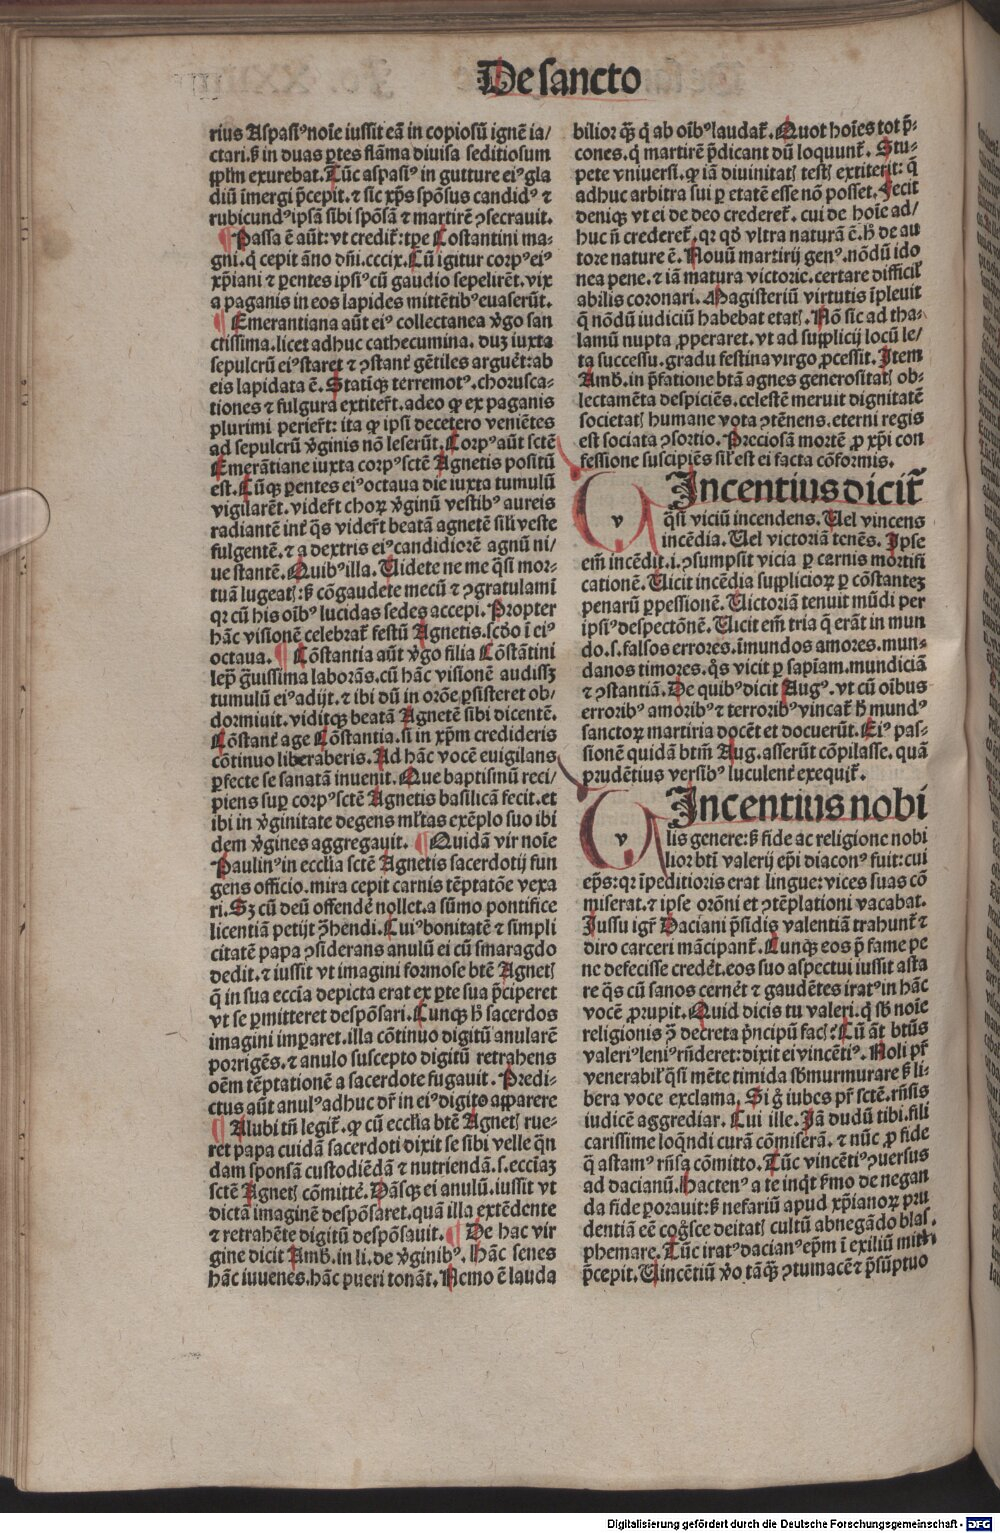 De sancto
rius Aspasiꝰ noīe iussit eā in copiosū ignē ia/
ctari. sʒ in duas ꝑtes flāma diuisa seditiosum
pplm exurebat. Tūc aspasiꝰ in gutture eiꝰ gla
diū īmergi p̄cepit. ⁊ sic xp̄s spōsus candidꝰ ⁊
rubicundꝰ ipsā sibi spōsā ⁊ martirē ꝯsecrauit.
¶ Passa ē aūt: vt credit̄: tꝑe Costantini ma-
gni. q̇ cepit āno dn̄i. cccix. Cū igitur corpꝰ eiꝰ
xp̄iani ⁊ ꝑentes ipsiꝰ cū gaudio sepelirēt. vix
a paganis in eos lapides mittētibꝰ euaserūt.
¶ Emerantiana aūt eiꝰ collectanea v̓go san
ctissima. licet adhuc cathecumina. dum iuxta
sepulcrū eiꝰ staret ⁊ ꝯstant̓ gētiles arguēt: ab
eis lapidata ē. Statiqꝫ terremotꝰ. chorusca-
tiones ⁊ fulgura extiter̄t. adeo ꝙ ex paganis
plurimi perier̄t: ita ꝙ ipsi decetero veniētes
ad sepulcrū v̓ginis nō leserūt. Corpꝰ aūt sctē
Emerātiane iuxta corpꝰ sctē Agnetis positū
est. Cūqꝫ ꝑentes eiꝰ octaua die iuxta tumulū
vigilarēt. vider̄t choꝝ v̓ginū vestibꝰ aureis
radiantē int̓ q̄s vider̄t beatā agnetē sili veste
fulgentē. ⁊ a dextris eiꝰ candidiorē agnū ni/
ue stantē. Quibꝰ illa. Uidete ne me q̄si mor-
tuā lugeatꝭ: sʒ cōgaudete mecū ⁊ ꝯgratulami
qꝛ cū his oībꝰ lucidas sedes accepi. Propter
hāc visionē celebrat̄ festū Agnetis. scḋo ī eiꝰ
octaua. ¶ Cōstantia aūt v̓go filia Cōstātini
lep̄ g̓uissima laborās. cū hāc visionē audissꝫ
tumulū eiꝰ adijt. ⁊ ibi dū in orōe ꝑsisteret ob/
dormiuit. viditqꝫ beatā Agnetē sibi dicentē.
Cōstant̓ age Cōstantia. si in xp̄m credideris
cōtinuo liberaberis. Ad hāc vocē euigilans
ꝑfecte se sanatā inuenit. Que baptismū reci/
piens suꝑ corpꝰ sctē Agnetis basilicā fecit. et
ibi in v̓ginitate degens ml̄tas exēplo suo ibi
dem v̓gines aggregauit. ¶ Quidā vir noīe
Paulinꝰ in ecclia sctē Agnetis sacerdotij fun
gens officio. mira cepit carnis tēptatōe vexa
ri. Sꝫ cū deū offendē nollet. a sūmo pontifice
licentiā petijt ꝯ̄hendi. Cuiꝰ bonitatē ⁊ simpli
citatē papa ꝯsiderans anulū ei cū smaragdo
dedit. ⁊ iussit vt imagini formose btē Agnetꝭ
q̄ in sua eccia depicta erat ex ꝑte sua p̄ciperet
vt se ꝑmitteret despōsari. Cunqꝫ hͦ sacerdos
imagini imꝑaret. illa cōtinuo digitū anularē
porrigēs. ⁊ anulo suscepto digitū retrahens
oēm tēptationē a sacerdote fugauit. Predi-
ctus aūt anulꝰ adhuc dr̄ in eiꝰ digito apparere
¶ Alubi tn̄ legit̄. ꝙ cū ecclia btē Agnetꝭ rue-
ret papa cuidā sacerdoti dixit se sibi velle q̄n
dam sponsā custodiēdā ⁊ nutriendā. s. ecciaꝫ
sctē Agnetꝭ cōmittē. Dāsqꝫ ei anulū. iussit vt
dictā imaginē despōsaret. quā illa extēdente
⁊ retrahēte digitū despōsauit. ¶ De hac vir
gine dicit Amb̄. in li. de v̓ginibꝰ. Hāc senes
hāc iuuenes. hāc pueri tonāt. Nemo ē lauda
bilior q̄ꝫ q̇ ab oībꝰ laudat̄. Quot hoīes tot p̄-
cones. q̇ martirē p̄dicant dū loquunt̄. Stu-
pete vniuersi. ꝙ iā diuinitatꝭ testꝭ extiterit: q̄
adhuc arbitra sui ꝑ etatē esse nō posset. Fecit
deniqꝫ vt ei de deo crederet̄. cui de hoīe ad/
huc n̄ crederet̄. qꝛ qḋ vltra naturā ē. hͦ de au
tore nature ē. Nouū martirij genꝰ. nōdū ido
nea pene. ⁊ iā matura victorie. certare difficil̓
abilis coronari. Magisteriū virtutis īpleuit
q̄ nōdū iudiciū habebat etatꝭ. Nō sic ad tha-
lamū nupta ꝓperaret. vt ad supplicij locū le/
ta successu. gradu festina virgo ꝓcessit. Item
Amb̄. in p̄fatione btā agnes generositatꝭ ob-
lectamēta despiciēs. celestē meruit dignitatē
societatꝭ humane vota ꝯtēnens. eterni regis
est sociata ꝯsortio. Preciosā mortē ꝓ xp̄i con
fessione suscipiēs sil̓ est ei facta cōformis.
v
Incentius dicit̄
q̄si viciū incendens. Uel vincens
incēdia. Uel victoriā tenēs. Ipse
em̄ incēdit. i. ꝯsumpsit vicia ꝑ carnis mortifi
cationē. Uicit incēdia supplicioꝝ ꝑ cōstanteꝫ
penarū ꝑpessionē. Uictoriā tenuit mūdi per
ipsiꝰ despectōnē. Uicit em̄ tria q̄ erāt in mun
do. s. falsos errores. īmundos amores. mun-
danos timores. q̄s vicit ꝑ sapiam. mundiciā
⁊ ꝯstantiā. De quibꝰ dicit Augꝰ. vt cū oībus
erroribꝰ amoribꝰ ⁊ terroribꝰ vincat̄ hͦ mundꝰ
sanctoꝝ martiria docēt et docuerūt. Eiꝰ pas-
sionē quidā btm̄ Aug. asserūt cōpilasse. quā
prudētius versibꝰ luculent̓ exequit̄.
v
Incentius nobi
lis genere: sʒ fide ac religione nobi
lior btī valerij ep̄i diaconꝰ fuit: cui
ep̄s: qꝛ īpeditioris erat lingue: vices suas cō
miserat. ⁊ ipse orōni et ꝯtēplationi vacabat.
Jussu igr̄ Daciani p̄sidis valentiā trahunt̄ ⁊
diro carceri mācipant̄. Cunqꝫ eos p̄ fame pe
ne defecisse credēt. eos suo aspectui iussit asta
re q̄s cū sanos cernēt ⁊ gaudētes iratꝰ in hāc
vocē ꝓrupit. Quid dicis tu valeri. q̇ sb̄ noīe
religionis ꝯ̄ decreta p̓ncipū facꝭ? Cū āt btūs
valeriꝰ leniꝰ rn̄deret: dixit ei vincētiꝰ. Noli pr̄
venerabil̓ q̄si mēte timida sb̄murmurare sʒ li-
bera voce exclama. Si g̊ iubes pr̄ sctē. rn̄sis
iudicē aggrediar. Cui ille. Jā dudū tibi. fili
carissime loq̄ndi curā cōmiserā. ⁊ nūc ꝓ fide
q̄ astamꝰ rn̄sa cōmitto. Tūc vincētiꝰ ꝯuersus
ad dacianū. Hactenꝰ a te inq̇t sermo de negan
da fide ꝑorauit: sʒ nefariū apud xp̄ianoꝝ pru
dentiā eē cog̓sce deitatꝭ cultū abnegādo blas
phemare. Tūc iratꝰ dacianꝰ ep̄m ī exiliū mitti
p̄cepit. Uincētiū v̓o tāq̄ꝫ ꝯtumacē ⁊ p̄sūptuo
Digitalisierung gefördert durch die Deutsche Forschungsgemeinschaft - DFG